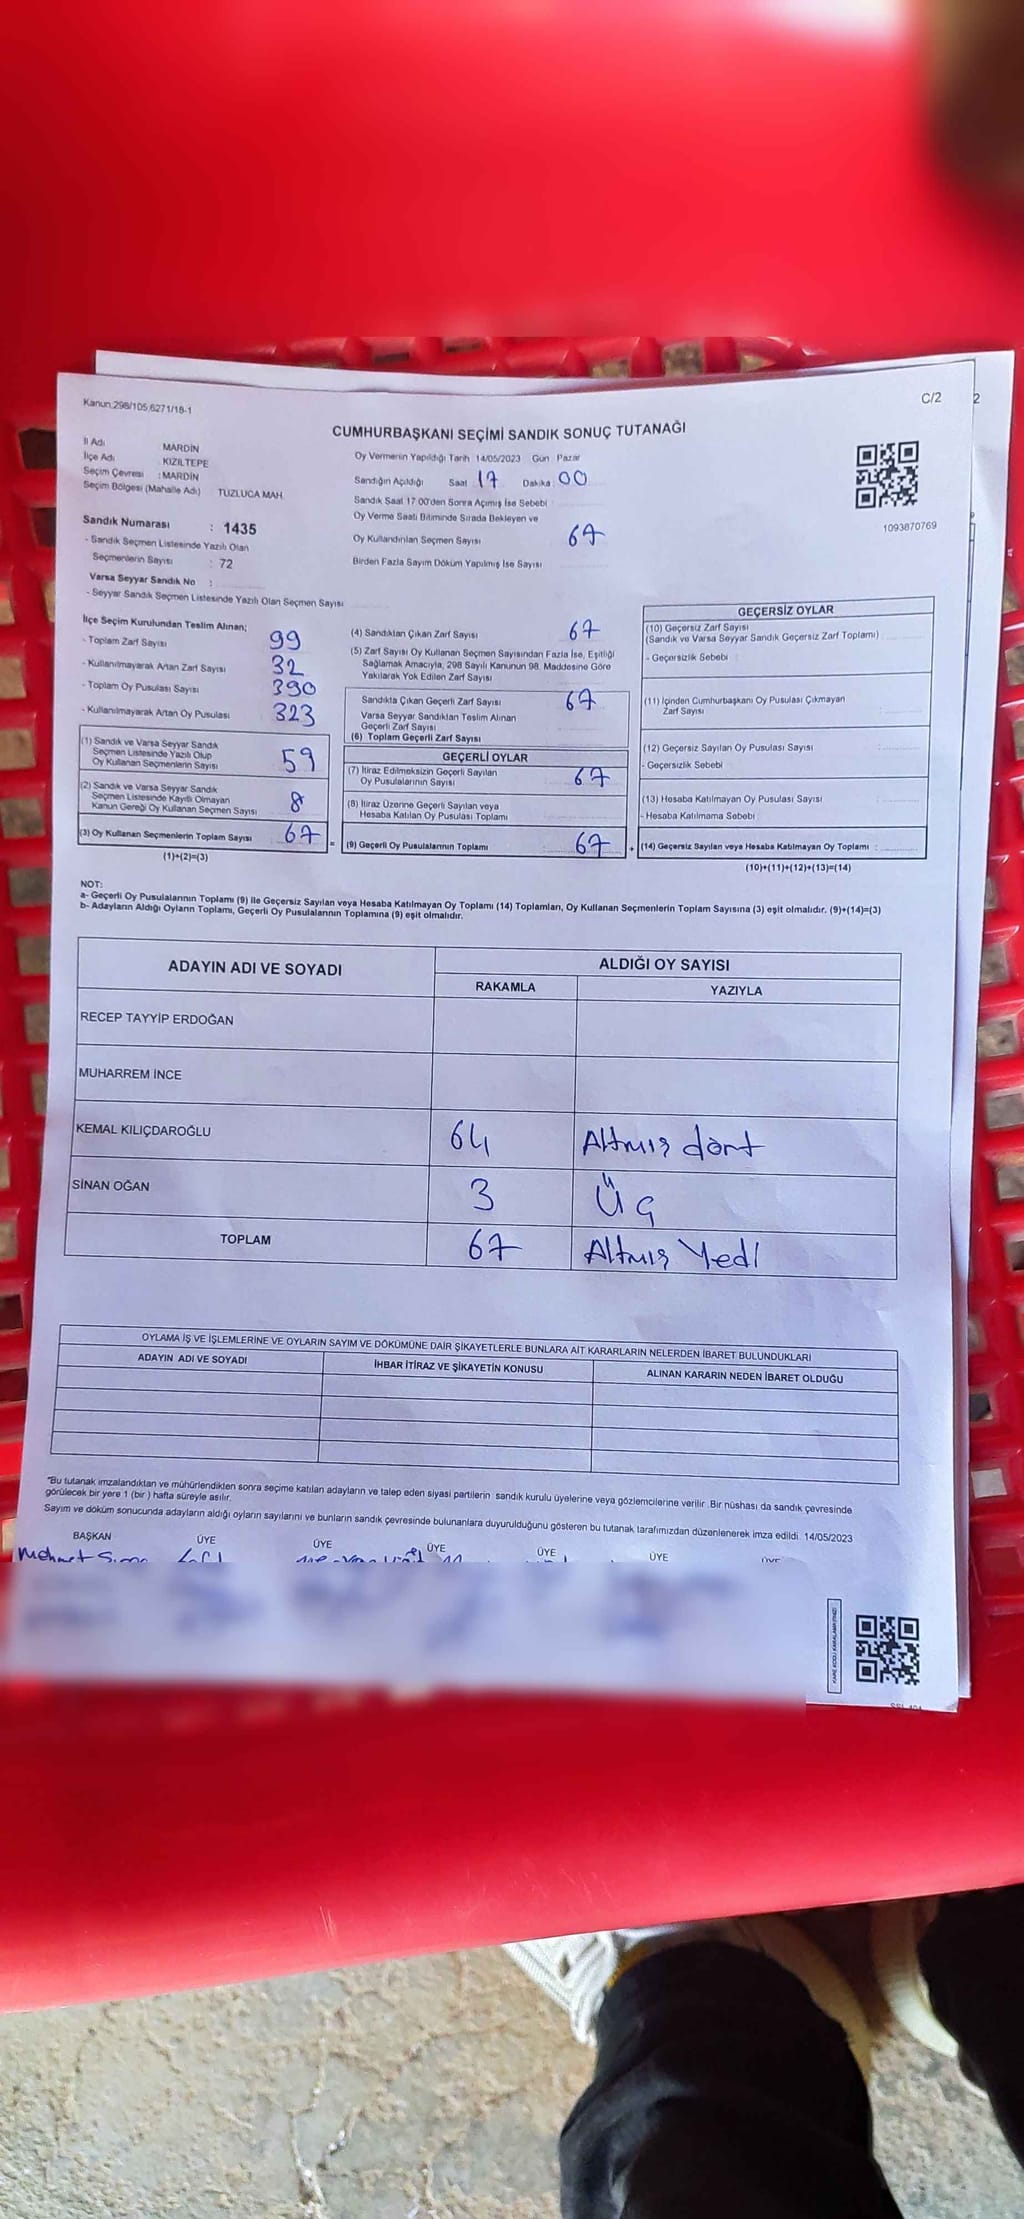 Kanun:298/105,6271/18-1
C/2
2
CUMHURBAŞKANI SEÇİMİ SANDIK SONUÇ TUTANAĞI
İl Adı MARDİN
İlçe Adı KIZILTEPE
Seçim Çevresi : MARDİN
Seçim Bölgesi (Mahalle Adı) TUZLUCA MAH.
Sandık Numarası : 1435
- Sandık Seçmen Listesinde Yazılı Olan
Seçmenlerin Sayısı : 72
Varsa Seyyar Sandık No :
- Seyyar Sandık Seçmen Listesinde Yazılı Olan Seçmen Sayısı
Oy Vermenin Yapıldığı Tarih 14/05/2023 Gün Pazar
Sandığın Açıldığı Saat 17 Dakika : 00
Sandık Saat 17:00'den Sonra Açımış İse Sebebi
Oy Verme Saati Bitiminde Sırada Bekleyen ve
Oy Kullandırılan Seçmen Sayısı 67
Birden Fazla Sayım Döküm Yapılmış İse Sayısı
1093870769
İlçe Seçim Kurulundan Teslim Alınan;
- Toplam Zarf Sayısı 99
- Kullanılmayarak Artan Zarf Sayısı 32
- Toplam Oy Pusulası Sayısı 390
- Kullanılmayarak Artan Oy Pusulası 323
(1) Sandık ve Varsa Seyyar Sandık
Seçmen Listesinde Yazılı Olup
Oy Kullanan Seçmenlerin Sayısı 59
(2) Sandık ve Varsa Seyyar Sandık
Seçmen Listesinde Kayıtlı Olmayan
Kanun Gereği Oy Kullanan Seçmen Sayısı 8
(3) Oy Kullanan Seçmenlerin Toplam Sayısı 67 =
(1)+(2)=(3)
(4) Sandıktan Çıkan Zarf Sayısı 67
(5) Zarf Sayısı Oy Kullanan Seçmen Sayısından Fazla İse, Eşitliği
Sağlamak Amacıyla, 298 Sayılı Kanunun 98. Maddesine Göre
Yakılarak Yok Edilen Zarf Sayısı
Sandıkta Çıkan Geçerli Zarf Sayısı 67
Varsa Seyyar Sandıktan Teslim Alınan
Geçerli Zarf Sayısı
(6) Toplam Geçerli Zarf Sayısı
GEÇERLİ OYLAR
(7) İtiraz Edilmeksizin Geçerli Sayılan
Oy Pusulalarının Sayısı 67
(8) İtiraz Üzerine Geçerli Sayılan veya
Hesaba Katılan Oy Pusulası Toplamı
(9) Geçerli Oy Pusulalarının Toplamı 67 +
GEÇERSİZ OYLAR
(10) Geçersiz Zarf Sayısı
(Sandık ve Varsa Seyyar Sandık Geçersiz Zarf Toplamı)
- Geçersizlik Sebebi
(11) İçinden Cumhurbaşkanı Oy Pusulası Çıkmayan
Zarf Sayısı
(12) Geçersiz Sayılan Oy Pusulası Sayısı
- Geçersizlik Sebebi
(13) Hesaba Katılmayan Oy Pusulası Sayısı
- Hesaba Katılmama Sebebi
(14) Geçersiz Sayılan veya Hesaba Katılmayan Oy Toplamı :
(10)+(11)+(12)+(13)=(14)
NOT:
a- Geçerli Oy Pusulalarının Toplamı (9) ile Geçersiz Sayılan veya Hesaba Katılmayan Oy Toplamı (14) Toplamları, Oy Kullanan Seçmenlerin Toplam Sayısına (3) eşit olmalıdır. (9)+(14)=(3)
b- Adayların Aldığı Oyların Toplamı, Geçerli Oy Pusulalarının Toplamına (9) eşit olmalıdır.
ADAYIN ADI VE SOYADI
ALDIĞI OY SAYISI
RAKAMLA YAZIYLA
RECEP TAYYİP ERDOĞAN
MUHARREM İNCE
KEMAL KILIÇDAROĞLU 64 Altmış dört
SİNAN OĞAN 3 Üç
TOPLAM 67 Altmış Yedi
OYLAMA İŞ VE İŞLEMLERİNE VE OYLARIN SAYIM VE DÖKÜMÜNE DAİR ŞİKAYETLERLE BUNLARA AİT KARARLARIN NELERDEN İBARET BULUNDUKLARI
ADAYIN ADI VE SOYADI İHBAR İTİRAZ VE ŞİKAYETİN KONUSU ALINAN KARARIN NEDEN İBARET OLDUĞU
*Bu tutanak imzalandıktan ve mühürlendikten sonra seçime katılan adayların ve talep eden siyasi partilerin sandık kurulu üyelerine veya gözlemcilerine verilir. Bir nüshası da sandık çevresinde
görülecek bir yere 1 (bir ) hafta süreyle asılır.
Sayım ve döküm sonucunda adayların aldığı oyların sayılarını ve bunların sandık çevresinde bulunanlara duyurulduğunu gösteren bu tutanak tarafımızdan düzenlenerek imza edildi. 14/05/2023
BAŞKAN ÜYE ÜYE ÜYE ÜYE ÜYE ÜYE
Mehmet